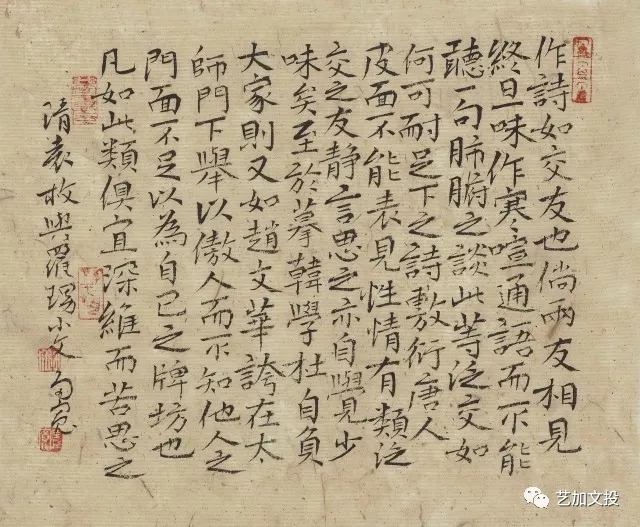 作詩如交友也倘兩友相見
終日一味作寒喧通語而不能
聽一句肺腑之談此等泛交如
何可耐足下之詩敷衍唐人
皮面不能表見性情有類泛
交之友靜言思之亦自覺見少
味矣至於摹韓學杜自負
大家則又如趙文華誇在太
師門下舉以傲人而不知他人之
門面不足以為自己之牌坊也
凡如此類俱宜深維而苦思之
隋袁枚與羅 小文
艺加文投